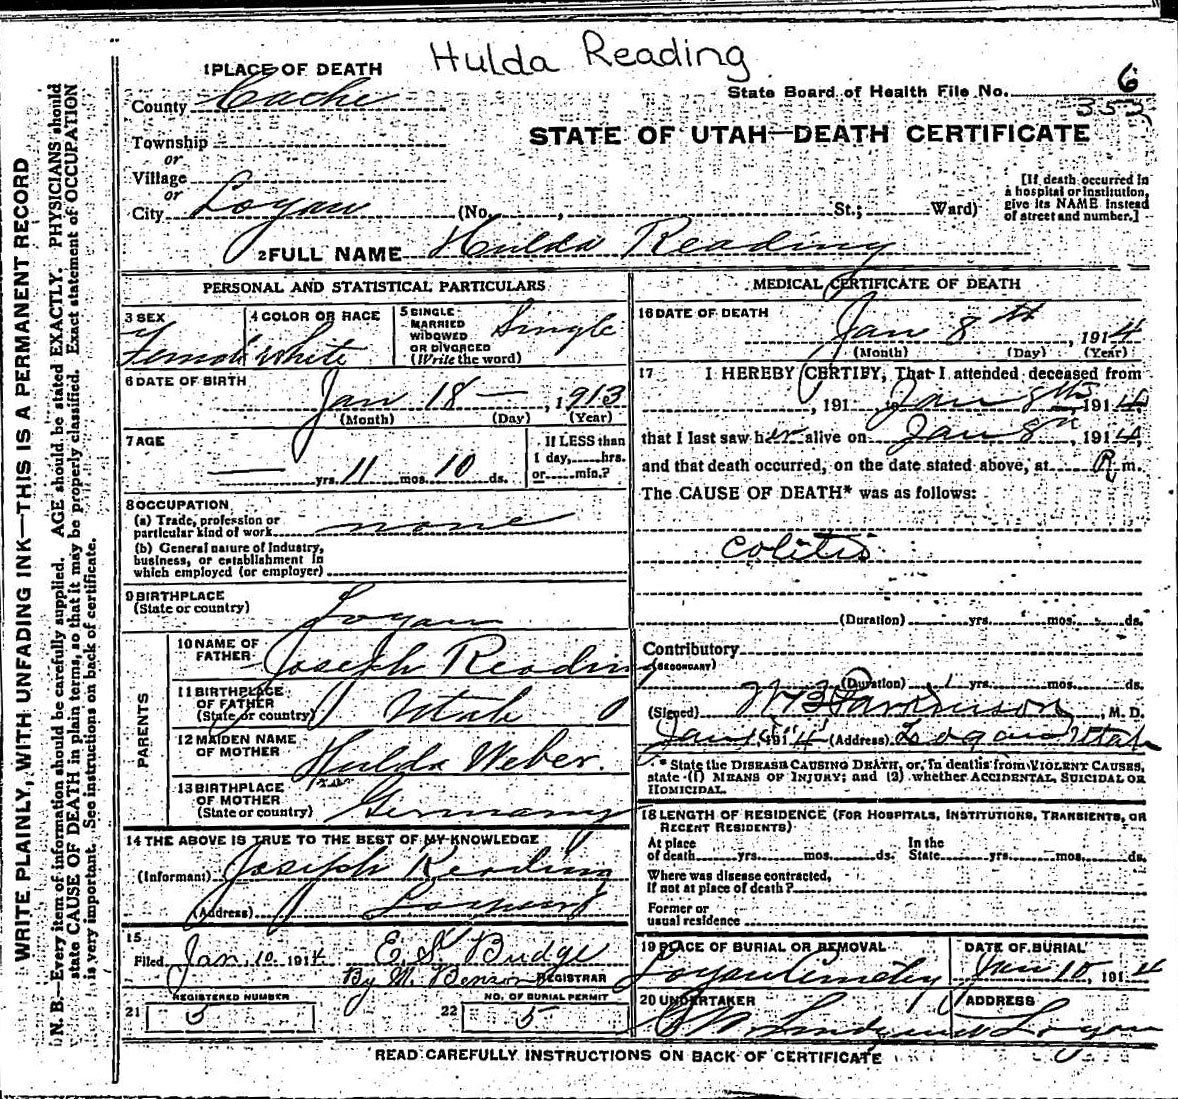 Hulda Reading
1 PLACE OF DEATH
County Cache
State Board of Health File No. 6
353
STATE OF UTAH—DEATH CERTIFICATE
Township
or
Village
or
City Logan (No. , St.; Ward)
[If death occurred in a hospital or institution, give its NAME instead of street and number.]
2 FULL NAME Hulda Reading
PERSONAL AND STATISTICAL PARTICULARS
3 SEX
Female
4 COLOR OR RACE
White
5 SINGLE MARRIED WIDOWED OR DIVORCED (Write the word)
Single
6 DATE OF BIRTH
Jan 18 — , 1913
(Month) (Day) (Year)
7 AGE
— yrs. 11 mos. 10 ds.
If LESS than
1 day, hrs.
or min.?
8 OCCUPATION
(a) Trade, profession or
particular kind of work none
(b) General nature of Industry,
business, or establishment in
which employed (or employer)
9 BIRTHPLACE
(State or country) Logan
PARENTS
10 NAME OF FATHER Joseph Reading
11 BIRTHPLACE OF FATHER (State or country) Utah
12 MAIDEN NAME OF MOTHER Hulda Weber.
13 BIRTHPLACE OF MOTHER (State or country) Germany
14 THE ABOVE IS TRUE TO THE BEST OF MY KNOWLEDGE
(Informant) Joseph Reading
(Address)
15
Filed Jan. 10, 1914 E. S. Budge
By M. Benson REGISTRAR
REGISTERED NUMBER
21 5
NO. OF BURIAL PERMIT
22 5
MEDICAL CERTIFICATE OF DEATH
16 DATE OF DEATH
Jan 8th , 1914
(Month) (Day) (Year)
17 I HEREBY CERTIFY, That I attended deceased from
, 191 to Jan 8th, 1914,
that I last saw her alive on Jan 8th, 1914,
and that death occurred, on the date stated above, at P m.
The CAUSE OF DEATH* was as follows:
Colitis
(Duration) yrs. mos. ds.
Contributory
(SECONDARY)
(Duration) yrs. mos. ds.
(Signed) W B Parkinson, M. D.
Jan 1914 (Address) Logan Utah
* State the DISEASE CAUSING DEATH, or, in deaths from VIOLENT CAUSES,
state (1) MEANS OF INJURY; and (2) whether ACCIDENTAL, SUICIDAL OR
HOMICIDAL.
18 LENGTH OF RESIDENCE (FOR HOSPITALS, INSTITUTIONS, TRANSIENTS, OR
RECENT RESIDENTS)
At place of death yrs. mos. ds. In the State yrs. mos. ds.
Where was disease contracted,
If not at place of death?
Former or
usual residence
19 PLACE OF BURIAL OR REMOVAL
Logan Cemetery
DATE OF BURIAL
Jan 10, 1914
20 UNDERTAKER
ADDRESS
Logan
READ CAREFULLY INSTRUCTIONS ON BACK OF CERTIFICATE
WRITE PLAINLY, WITH UNFADING INK—THIS IS A PERMANENT RECORD
N. B.—Every item of information should be carefully supplied. AGE should be stated EXACTLY. PHYSICIANS should
state CAUSE OF DEATH in plain terms, so that it may be properly classified. Exact statement of OCCUPATION
is very important. See instructions on back of certificate.